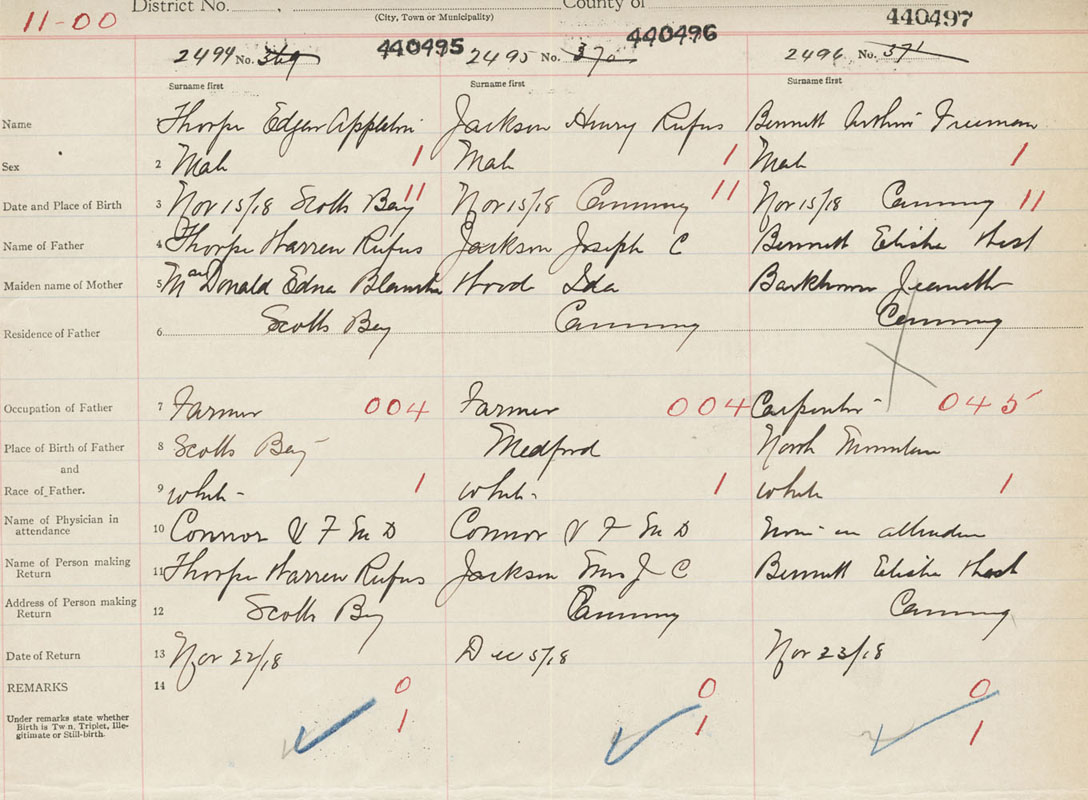 11-00 District No. County of
(City, Town or Municipality)
440495 440496 440497
2494 No. 369 2495 No. 370 2496 No. 371
Surname first Surname first Surname first
Name Thorpe Edgar Appleton Jackson Henry Rufus Bennett Arthur Freeman
Sex 2 Male 1 Male 1 Male 1
Date and Place of Birth 3 Nov 15/18 Scotts Bay 11 Nov 15/18 Canning 11 Nov 15/18 Canning 11
Name of Father 4 Thorpe Warren Rufus Jackson Joseph C Bennett Elisha
Maiden name of Mother 5 MacDonald Edna Blanche Wood Ida Jeanette
Residence of Father 6 Scotts Bay Canning Canning
Occupation of Father 7 Farmer 004 Farmer 004 Carpenter 045
Place of Birth of Father 8 Scotts Bay Medford North Mountain
and
Race of Father. 9 White 1 White 1 White 1
Name of Physician in
attendance 10 Connor V F M D Connor V F M D None in attendance
Name of Person making
Return 11 Thorpe Warren Rufus Jackson Mrs J C Bennett Elisha
Address of Person making
Return 12 Scotts Bay Canning Canning
Date of Return 13 Nov 22/18 Dec 5/18 Nov 23/18
REMARKS 14 0 0 0
Under remarks state whether
Birth is Twn, Triplet, Ille-
gitimate or Still-birth. 1 1 1